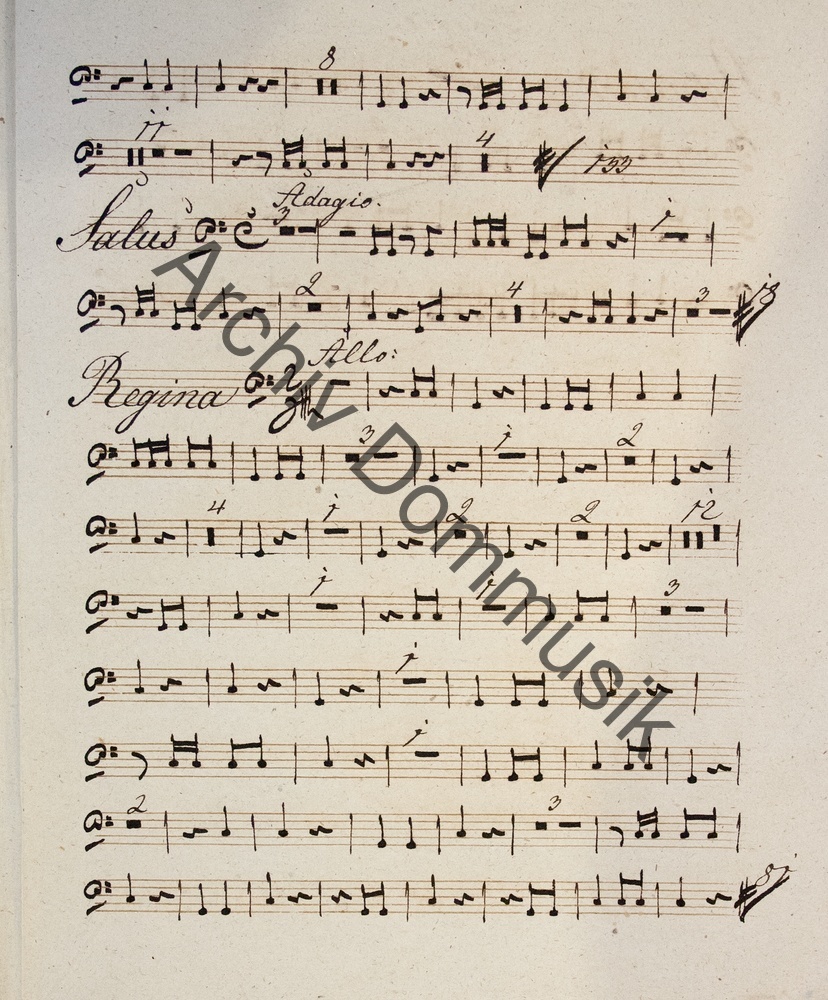 8
11
4 133
Adagio.
3
Salus C 1
2 4 3 18
Allo:
Regina
3 1 2
4 1 2 2 12
1 1 3
1
1
2 3
81
Archiv Dommusik